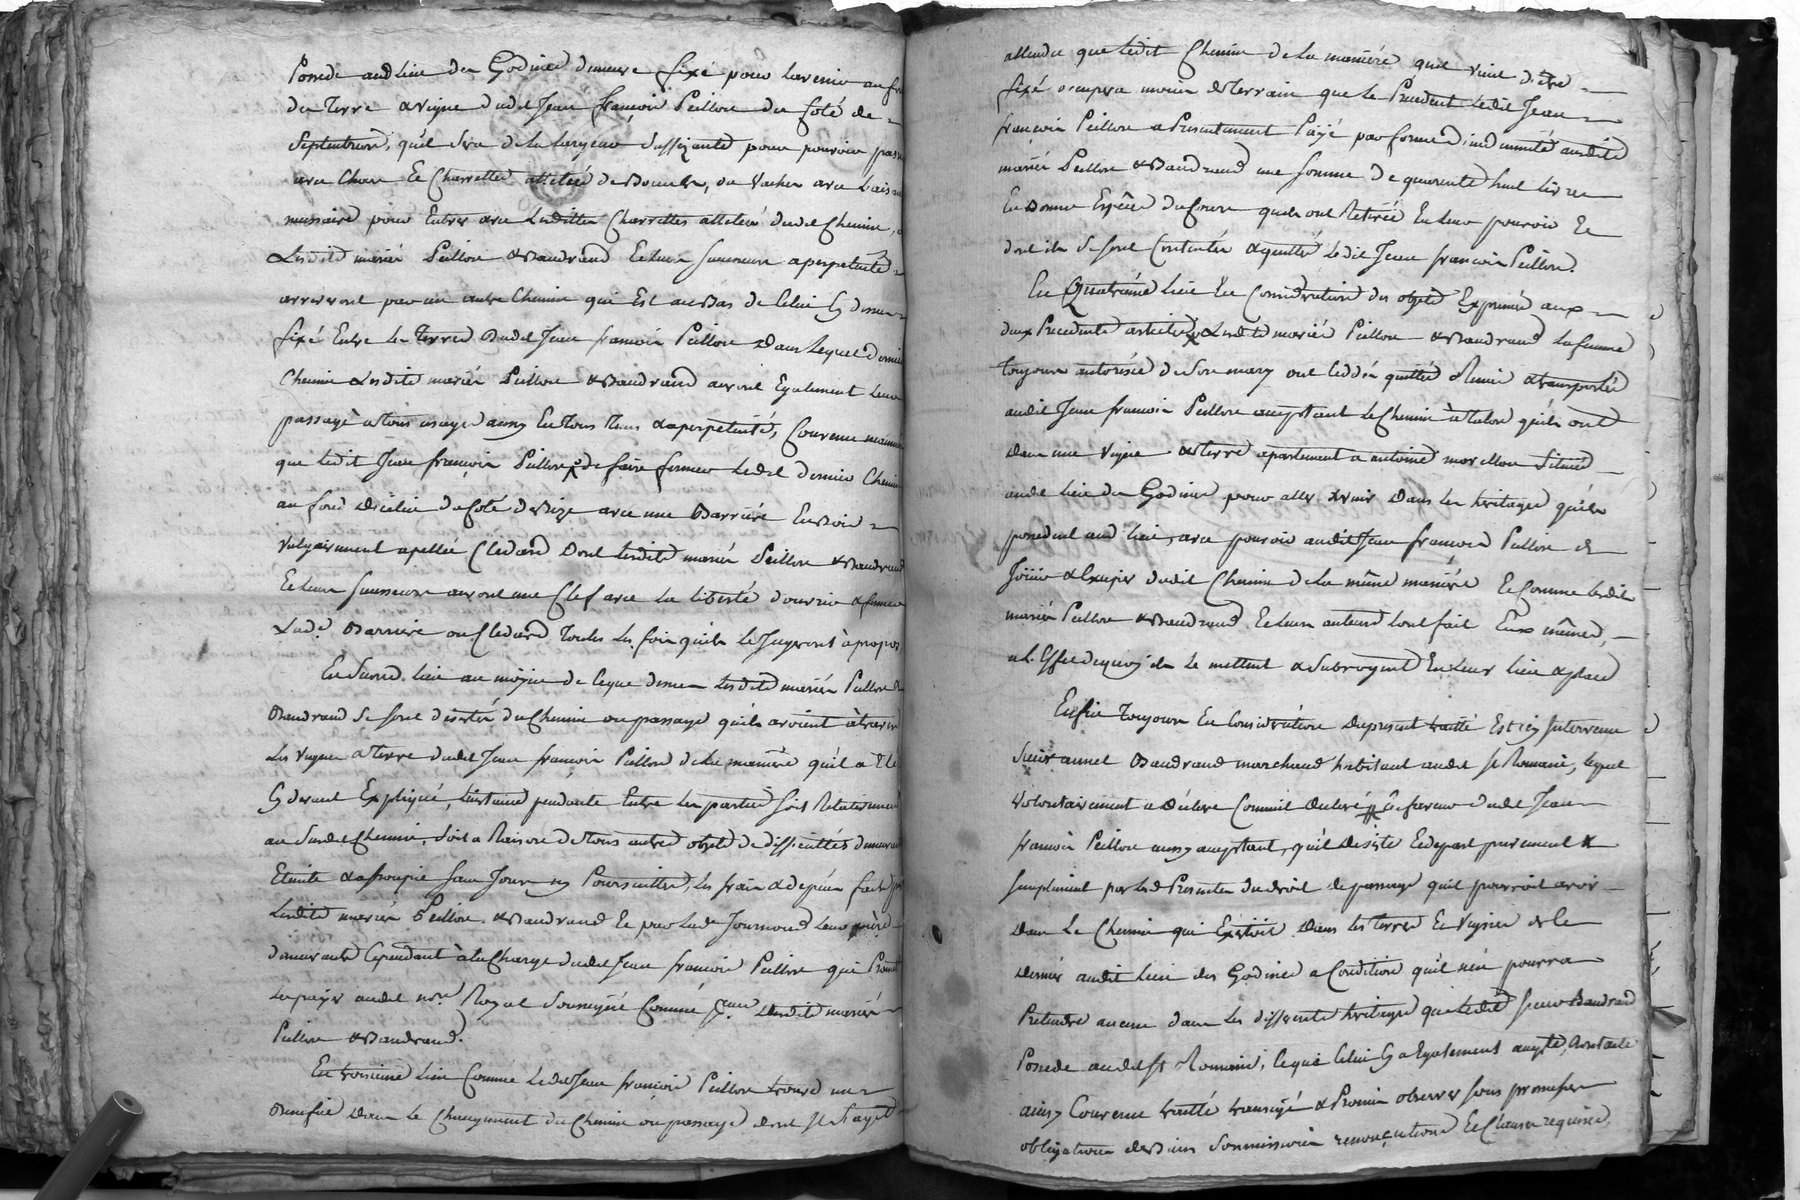 Possede audlieu des Godines demeure fixé pour lavenir au
des Terre & vigne dudt Jean françois Peillon du coté de
Septentrion, quil sera de la largeur suffizante pour pouvoir passer
avec Chars Et Charrettes attelés de Boeufs, ou Vaches avec L'ais
necessaire pour Entrer avec Lesdittes Charrettes attelées dudt Chemin,
Lesdits mariés Peillon & Baudrand Et Leurs successeurs a perpetuité
arriveront par un autre Chemin qui Est au Bas de Celui Cy dessus
fixé Entre les Terres dudt Jean françois Peillon dans Lequel dernier
Chemin Lesdits mariés Peillon & Baudrand auront Egalement Leur
passage a tous usages aussy En tous tems & a perpetuité, Convenu
que ledit Jean françois Peillon de faire fermer Ledt dernier Chemin
au fond dicelui du Coté de Bize avec une Barriere En Bois
Vulgairement apellée Cledard Dont lesdits mariés Peillon & Baudrand
Et Leurs successeurs auront une Clef avec La liberté d'ouvrir & fermer
Lade Barriere ou Cledard Toutes Les fois quils le Jugeront à propos
En Second Lieu au moyen de Ceque dessus Lesdits mariés Peillon &
Baudrand Se sont desistés du Chemin ou passage quils avoient à travers
Les Vignes & Terre dudt Jean françois Peillon de la maniere quil a Eté
Cy devant Expliqué, Linstance pendante Entre Les parties soit Relativement
au Susdt Chemin, Soit a Raison de tous autres objets de difficultés demeurant
Eteinte & assoupie sans Jours ny Poursuittes, les frais & depens faits par
Lesdits mariés Peillon & Baudrand Et par Ledt Journoud Leur
demeurants Cependant à la Charge dudt Jean françois Peillon qui Promet
Les payer audt nore Royal Soussigné Comme Lesdits mariés
Peillon & Baudrand.
En troisieme Lieu Comme Ledt Jean françois Peillon trouve un
Benefice dans Le Changement du Chemin ou passage dont Il S'agit
attendu que Ledit Chemin de La maniére quil vient d'être
fixé occupera moins de Terrain que Le Precedent Ledit Jean
françois Peillon a Presentement Payé par forme d'indemnité ausdits
mariés Peillon & Baudrand une somme de quarente huit livres
En Bonnes Espéces du Cours quils ont Retirée En Leur pouvoir Et
dont ils Se sont Contentés & quitté Ledit Jean françois Peillon.
En Quatriéme Lieu En Considération des objets Exprimés aux
deux Precedents articles Lesdits mariés Peillon & Baudrand La femme
Toujours autorisée de Son mary ont Cédés quittés Remis & transportés
audit Jean françois Peillon acceptant Le Chemin à Talon quils ont
Dans une Vigne & Terre apartenant a antoine morellon Situés
audt Lieu des Godines pour aller & venir Dans Les heritages quils
possedent aud Lieu, avec pouvoir audit Jean françois Peillon de
Joüir & Exuser dudit Chemin de La même maniére Et Comme Lesdits
mariés Peillon & Baudrand Et Leurs auteurs L'ont fait Eux mêmes,
a L'Effet dequoy ils Le mettent & Subrogent En Leur Lieu & place
Enfin Toujours En Considération Dupresent traité Est icy Intervenu
Sieur annet Baudrand marchand habitant audt St Romain, lequel
Volontairement a Déclaré Comme il Declaré En faveur dudt Jean
françois Peillon aussy acceptant, qu'il Desiste Et depart purement &
simplement par Les Presentes du droit de passage quil pourroit avoir
Dans Le Chemin qui Existoit Dans les Terres Et Vignes de Ce
dernier audit Lieu des Godines a Condition qu'il n'en pourra
Pretendre aucun dans les differents heritages que Ledt Sieur Baudrand
Possede audelst Romain, Ceque Celui Cy a Egalement accepté,
ainsy Convenu traitté transigé & Promis observer sous promesses
obligations de Biens Soumissions renonciations Et Clauses requises,